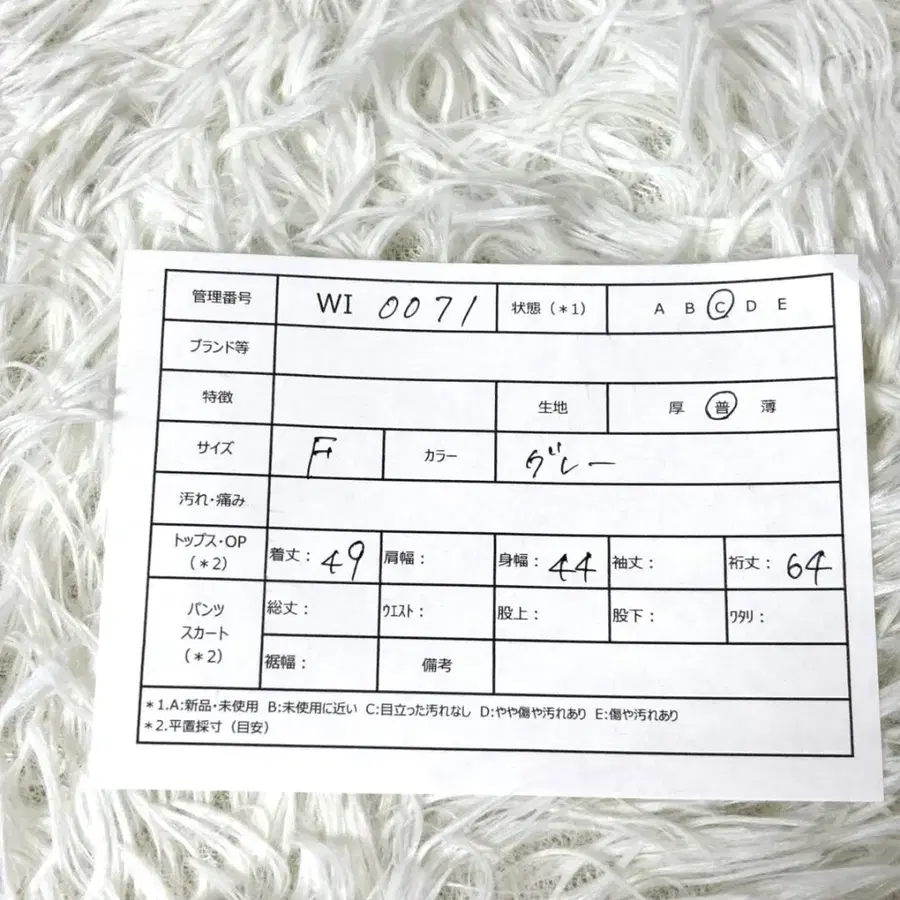 管理番号 WI 0071 状態（*1） A B C D E
ブランド等
特徴 生地 厚 普 薄
サイズ F カラー グレー
汚れ・痛み
トップス・OP
（*2）
着丈： 49 肩幅： 身幅： 44 袖丈： 裄丈： 64
パンツ
スカート
（*2）
総丈： ウエスト： 股上： 股下： ワタリ：
裾幅： 備考
*1.A:新品・未使用 B:未使用に近い C:目立った汚れなし D:やや傷や汚れあり E:傷や汚れあり
*2.平置採寸（目安）